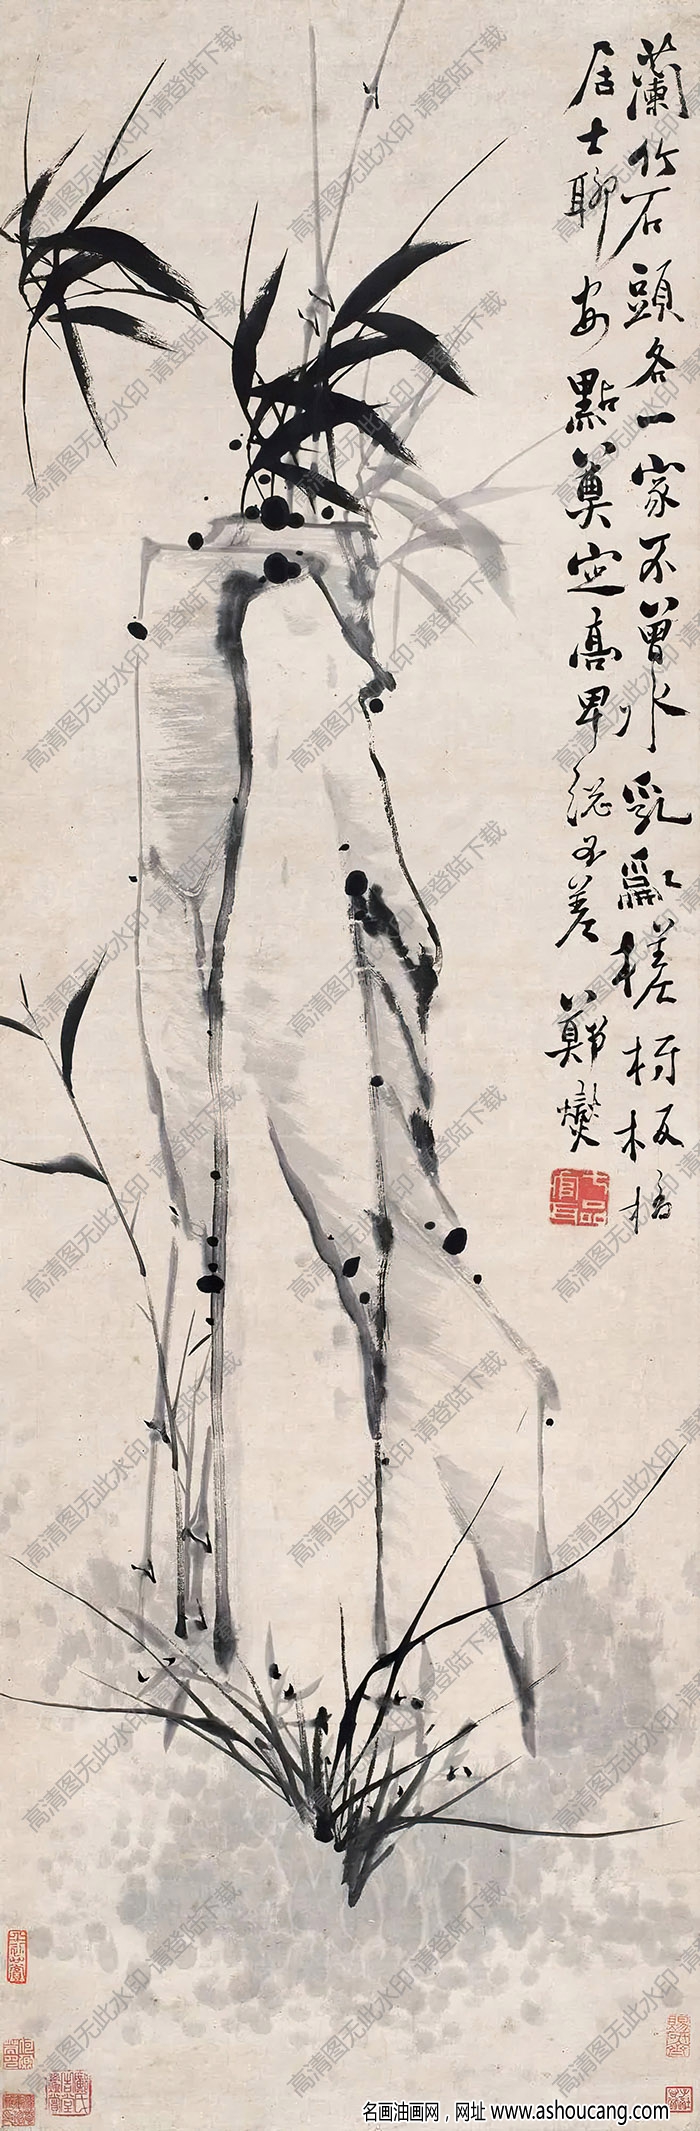 蘭竹石頭各一家不曾水乳亂槎枒板橋
居士聊安點莫定高卑總不差
鄭燮
高清图无此水印 请登陆下载
名画油画网，网址 www.ashoucang.com